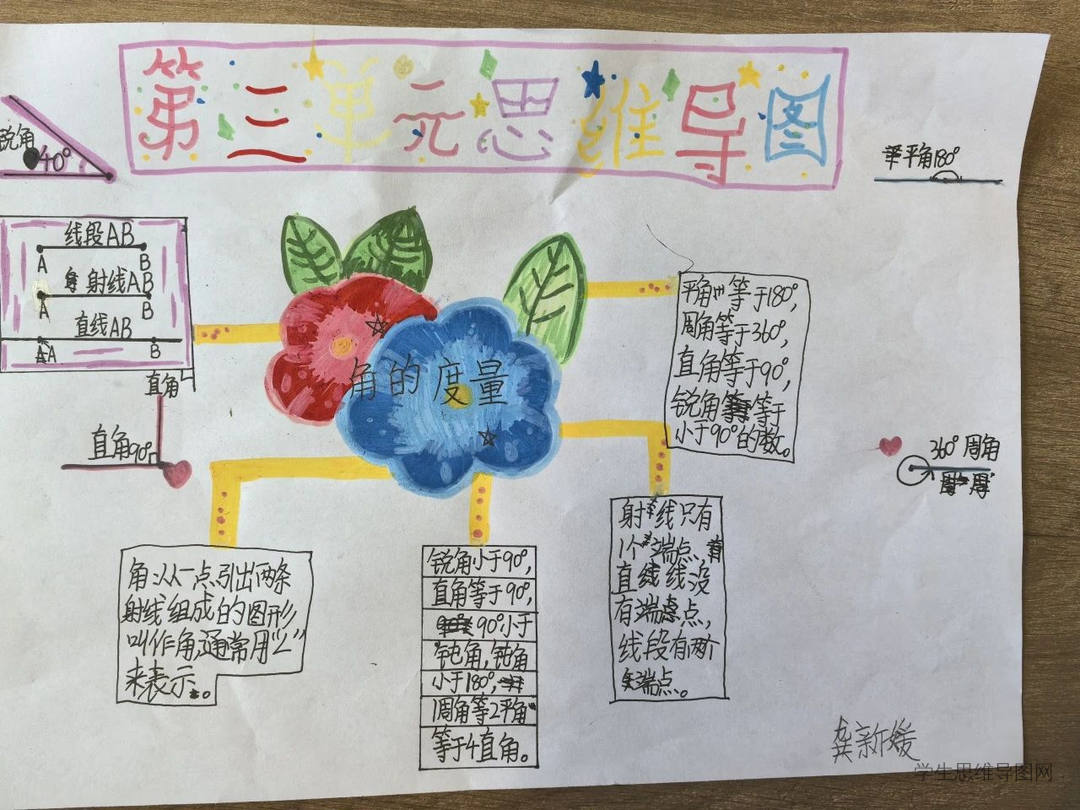 第三单元思维导图
锐角
40°
平角180°
线段AB
A B
射线AB
A B
直线AB
A B
直角
直角90°
角的度量
平角等于180°,
周角等于360°,
直角等于90°,
锐角等于
小于90°的数。
360°周角
角:从一点引出两条
射线组成的图形,
叫作角,通常用“∠”
来表示。
锐角小于90°,
直角等于90°,
90°小于
钝角,钝角
小于180°,
1周角等2平角
等于4直角。
射线只有
1个端点、
直线线没
有端点,
线段有两个
端点。
龚新媛
学生思维导图网